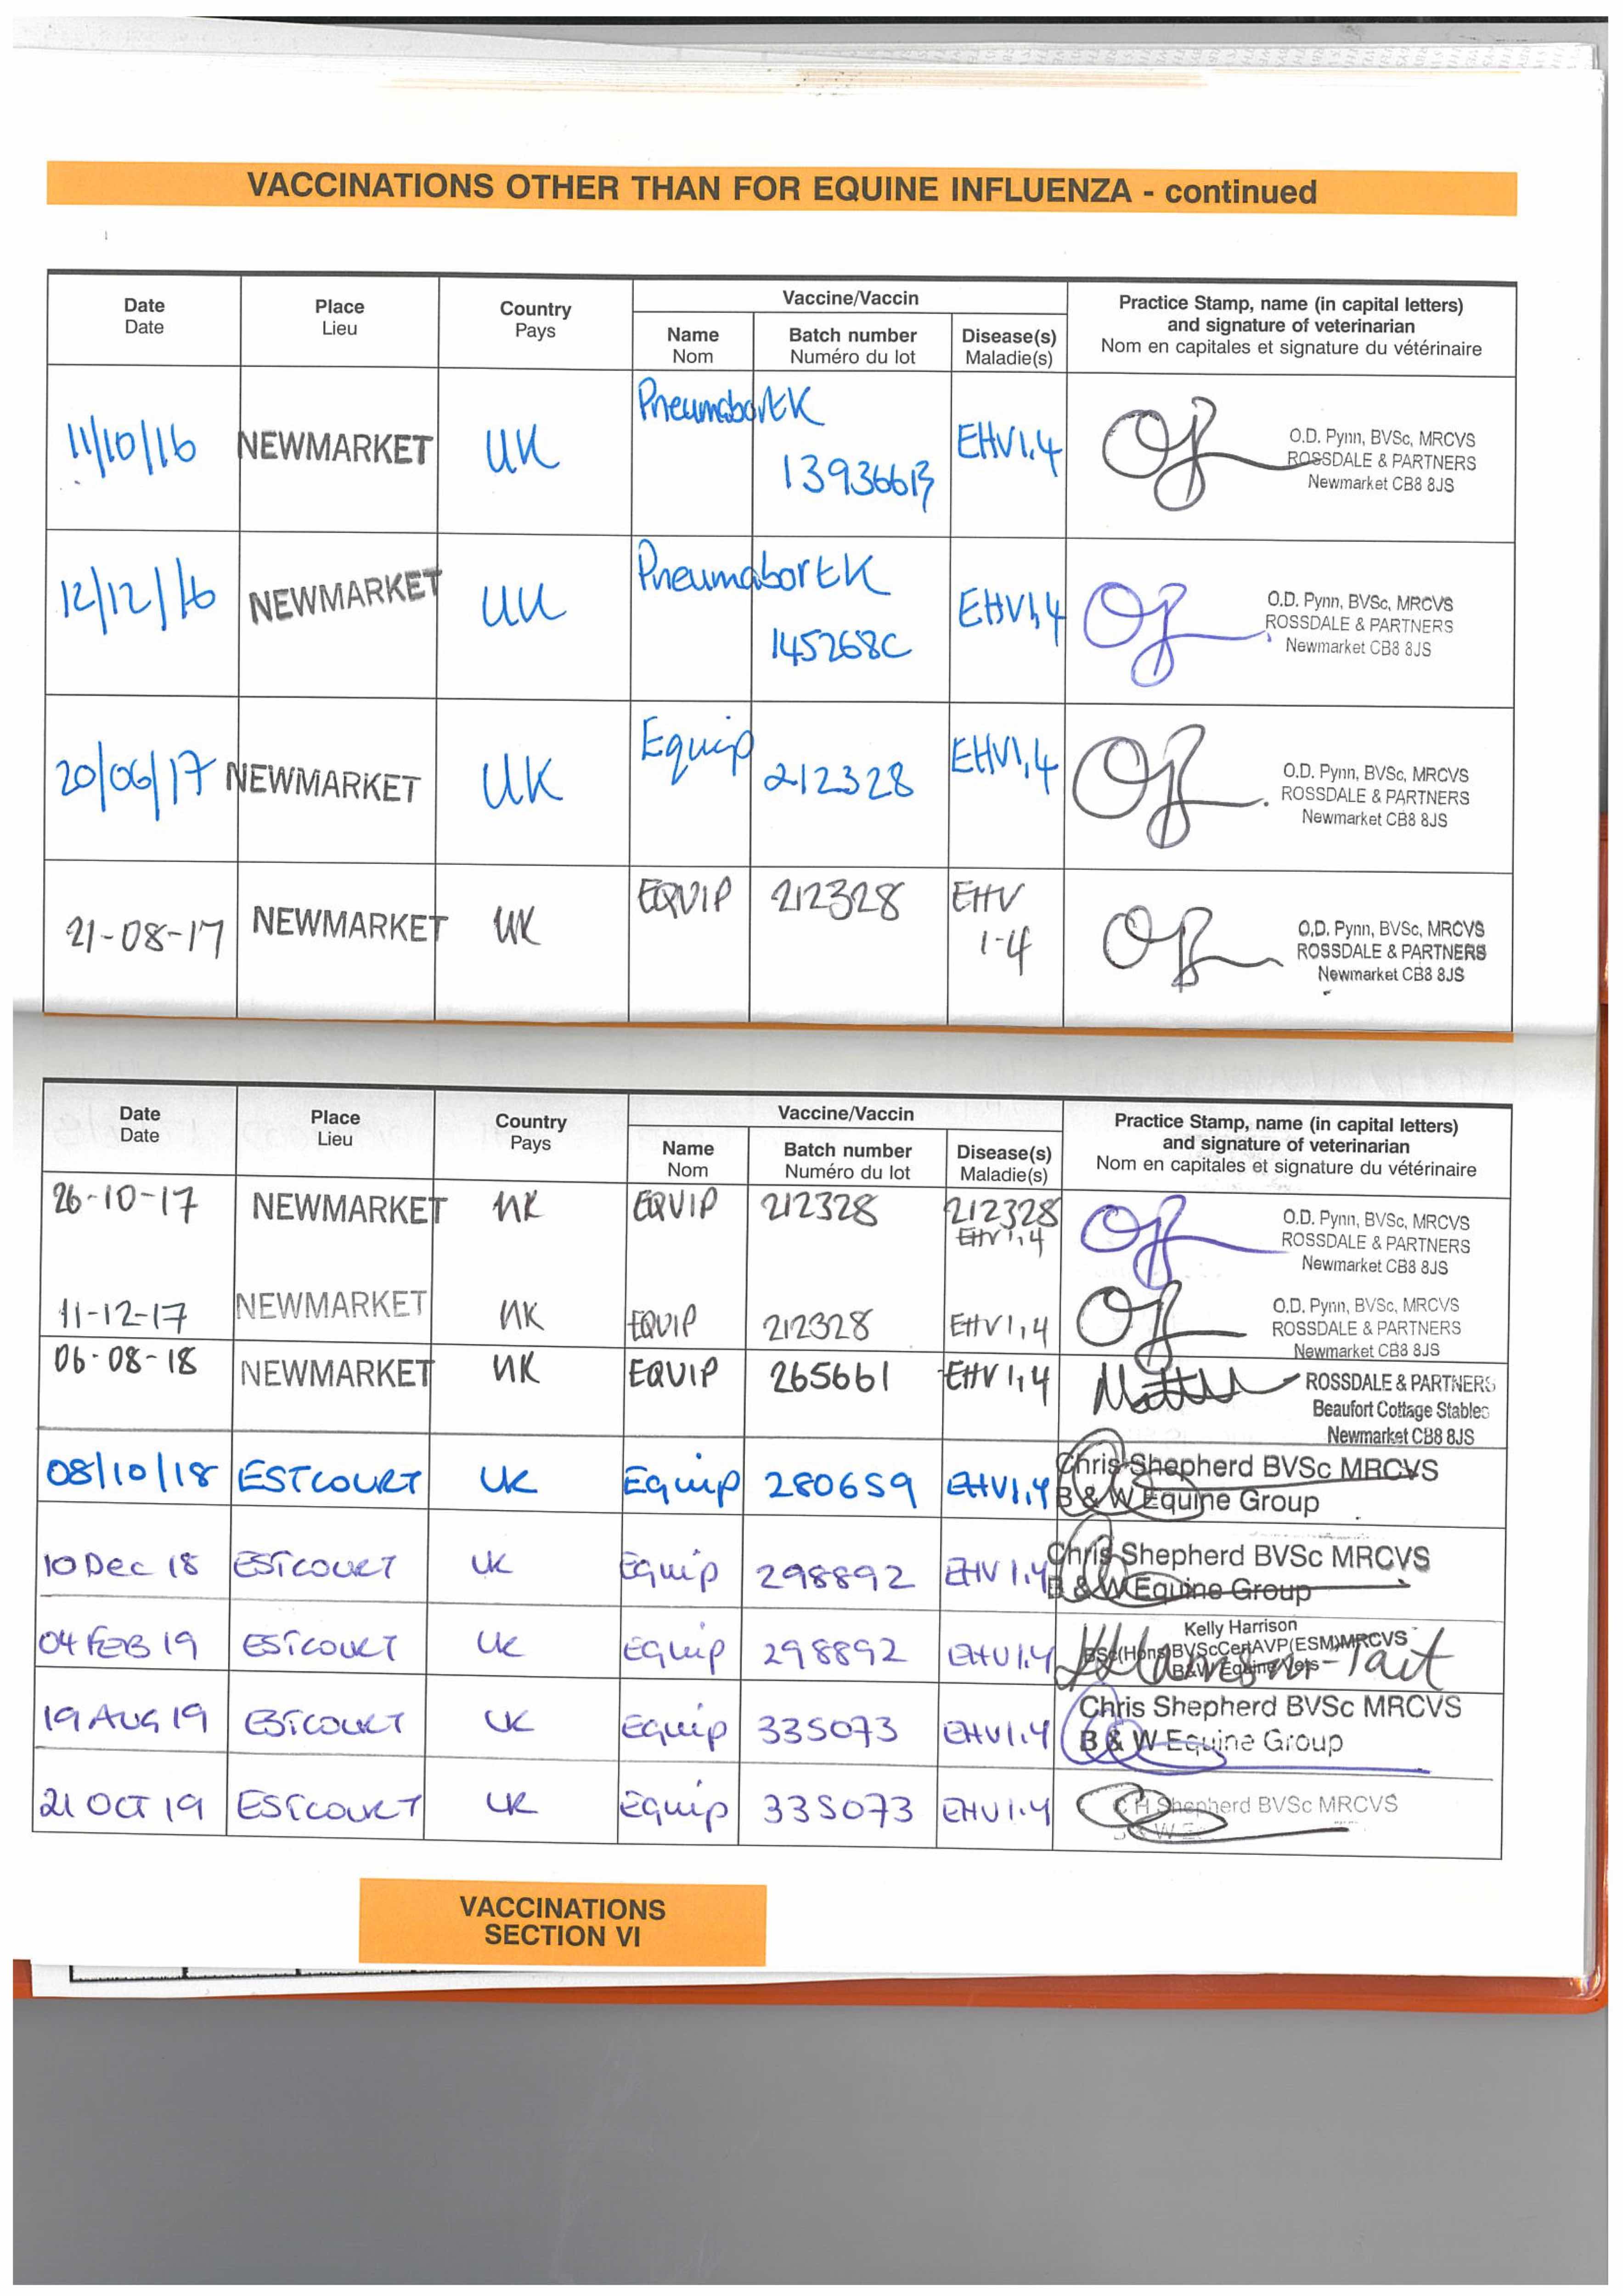 VACCINATIONS OTHER THAN FOR EQUINE INFLUENZA - continued
Date Place Country Vaccine/Vaccin Practice Stamp, name (in capital letters)
Date Lieu Pays Name Batch number Disease(s) and signature of veterinarian
Nom Numéro du lot Maladie(s) Nom en capitales et signature du vétérinaire
11/10/16 NEWMARKET UK PneumabortK EHV1,4 O.D. Pynn, BVSc, MRCVS
ROSSDALE & PARTNERS
Newmarket CB8 8JS
12/12/16 NEWMARKET UK PneumabortK 145268C EHV1,4 O.D. Pynn, BVSc, MRCVS
ROSSDALE & PARTNERS
Newmarket CB8 8JS
20/06/17 NEWMARKET UK Equip 212328 EHV1,4 O.D. Pynn, BVSc, MRCVS
ROSSDALE & PARTNERS
Newmarket CB8 8JS
21-08-17 NEWMARKET UK EQUIP 212328 EHV 1-4 O.D. Pynn, BVSc, MRCVS
ROSSDALE & PARTNERS
Newmarket CB8 8JS
Date Place Country Vaccine/Vaccin Practice Stamp, name (in capital letters)
Date Lieu Pays Name Batch number Disease(s) and signature of veterinarian
Nom Numéro du lot Maladie(s) Nom en capitales et signature du vétérinaire
26-10-17 NEWMARKET UK EQUIP 212328 212328 O.D. Pynn, BVSc, MRCVS
EHV 1,4 ROSSDALE & PARTNERS
Newmarket CB8 8JS
11-12-17 NEWMARKET UK EQUIP 212328 EHV1,4 O.D. Pynn, BVSc, MRCVS
ROSSDALE & PARTNERS
Newmarket CB8 8JS
06-08-18 NEWMARKET UK EQUIP 265661 EHV 1,4 ROSSDALE & PARTNERS
Beaufort Cottage Stables
Newmarket CB8 8JS
08/10/18 ESTCOURT UK Equip 280659 EHV1,4 Chris Shepherd BVSc MRCVS
B & W Equine Group
10 Dec 18 ESTCOURT UK Equip 298892 EHV 1,4 Chris Shepherd BVSc MRCVS
B & W Equine Group
04 FEB 19 ESTCOURT UK Equip 298892 EHV1,4 Kelly Harrison
BSc(Hons)BVScCertAVP(ESM)MRCVS
B&W Equine Vets
19 AUG 19 ESTCOURT UK Equip 335073 EHV1,4 Chris Shepherd BVSc MRCVS
B & W Equine Group
21 OCT 19 ESTCOURT UK Equip 335073 EHV1,4 C H Shepherd BVSc MRCVS
VACCINATIONS
SECTION VI